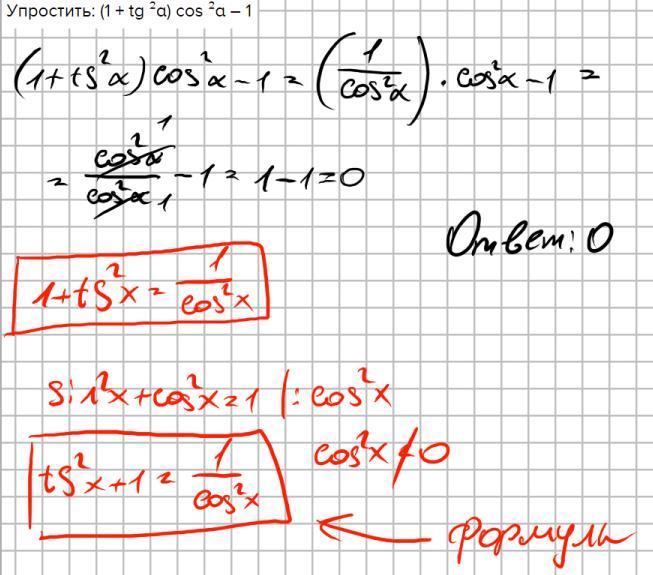 Упростить: (1 + tg ²a) cos ²a – 1
(1+tg²α)cos²α-1=(1/cos²α)·cos²α-1=
=cos²α 1/cos²α 1-1=1-1=0
Ответ: 0
1+tg²x=1/cos²x
sin²x+cos²x=1 |:cos²x
cos²x≠0
tg²x+1=1/cos²x
формулы